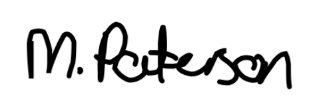 M. Paterson